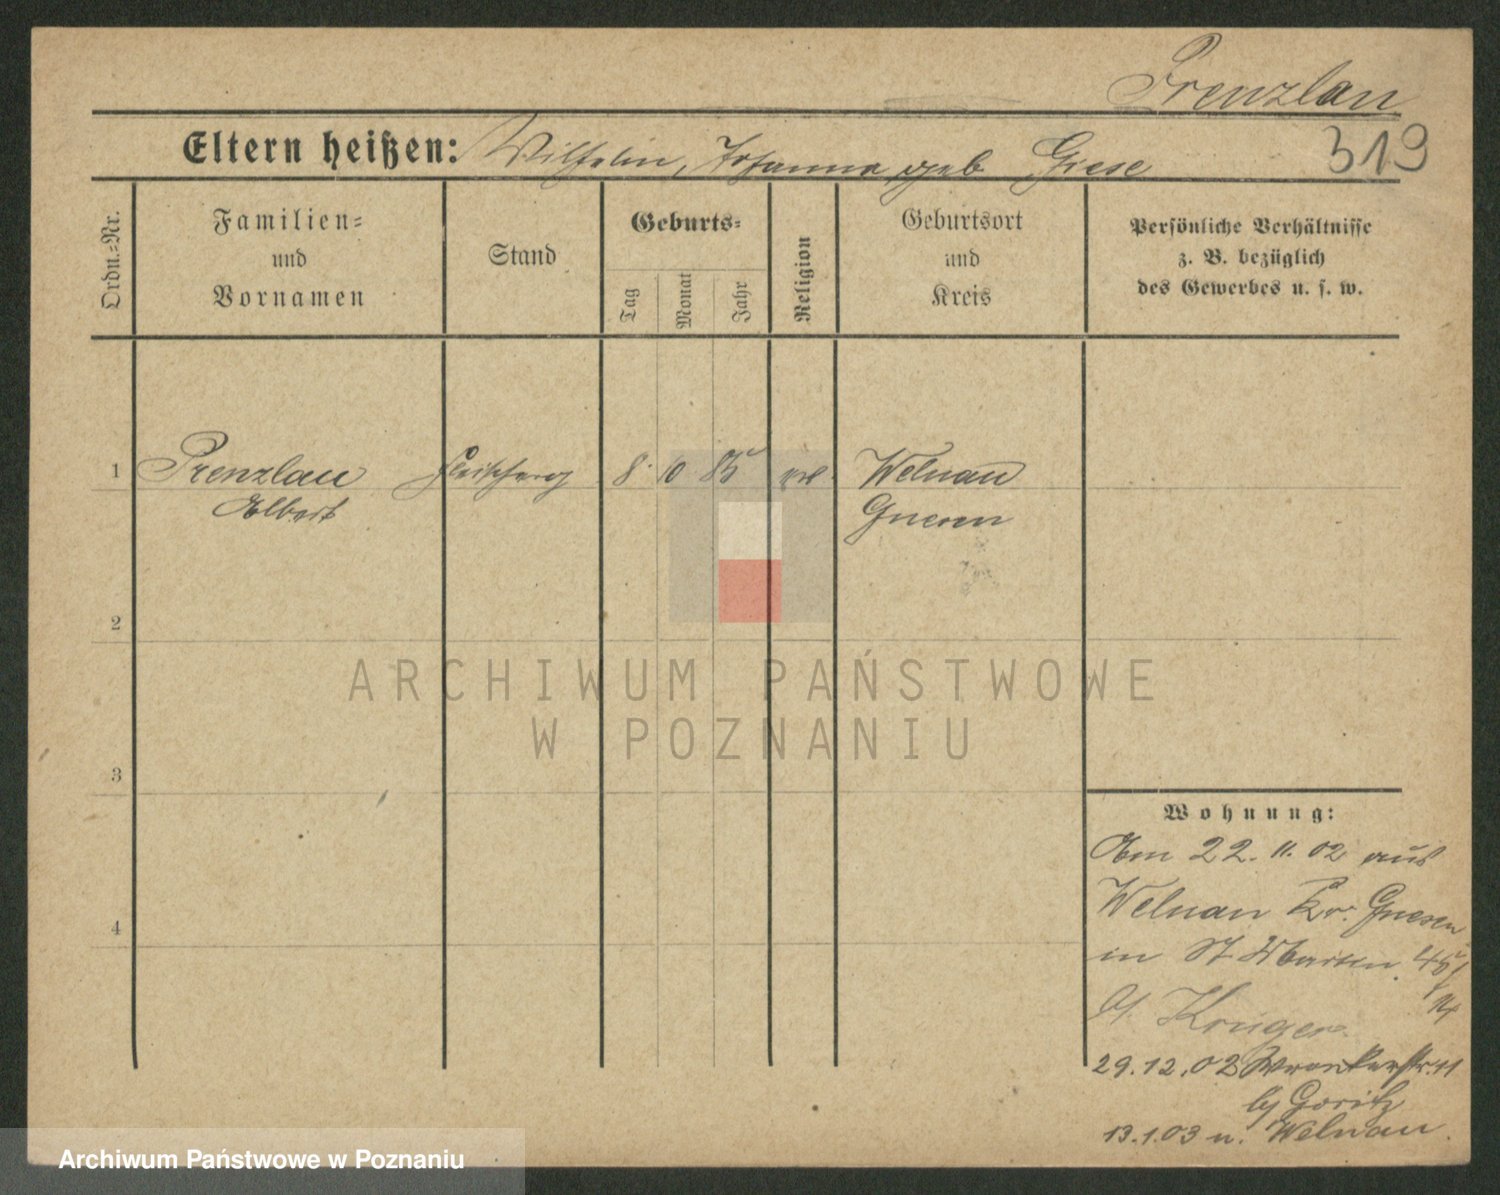 Prenzlau
Eltern heißen: Wilhelm, Johanna geb Giese
319
Ordn.=Nr.
Familien=
und
Vornamen
Stand
Geburts=
Tag
Monat
Jahr
Religion
Geburtsort
und
Kreis
Persönliche Verhältnisse
z. B. bezüglich
des Gewerbes u. s. w.
1 Prenzlau 8. 10 85 Welnau
Albert Gnesen
2
ARCHIWUM PAŃSTWOWE
W POZNANIU
3
Wohnung:
Am 22. 11. 02 aus
Welnau Kr. Gnesen
4
in St Martin
Krüger
29.12.02 Wronkerstr. 11
13.1.03 n. Welnau.
Archiwum Państwowe w Poznaniu